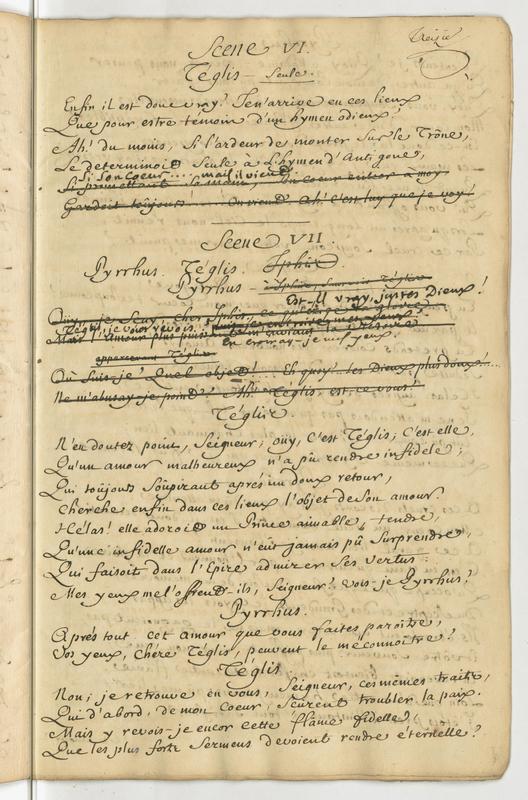 treizie
Scene VI.
Téglis Seule.
Enfin il est donc vray! J'en'arrive en ces lieux
Que pour estre témoin d'un hymen odieux;
Ah! du moins, Si l'ardeur de monter sur le Trône,
Le determinoit Seule à L'hymen d'Antigone,
Si son Coeur.... mais il vient.
Si promettant sa main, Son Coeur entier a moy
Gardoit toûjours .... On vient Ah! C'est luy que je voy!
Scene VII
Pyrrhus. Téglis. Iphis.
Pyrrhus
Est-il vray, justes Dieux!
Oüy, je Sçay, cher Iphis,
Téglis, je vous revois!
Mais l'Amour plus puissant la Victoire
en croiray-je mes yeux
appercevant Téglis
Où Suis-je? Quel objet!.... Eh quoy! les Dieux plus doux!...
Ne m'abusay-je point? Ah! Téglis, est-ce vous!
Téglis.
N'en doutez point, Seigneur; oüy, C'est Téglis; C'est elle,
Qu'un amour malheureux n'a pû rendre infidele;
Qui toûjours Soûpirant aprés un doux retour,
Cherche enfin dans ces lieux l'objet de son amour.
Hélas! elle adoroit un Prince aimable, tendre,
Qu'une infidelle amour n'eût jamais pû Surprendre,
Qui faisoit dans l'Epire admirer Ses vertus:
Mes yeux me l'offrent-ils, Seigneur? vois-je Pyrrhus?
Pyrrhus.
Aprés tout cet amour que vous faites paroître,
Vos yeux, Chére Téglis, peuvent le méconnoître?
Téglis
Non; je retrouve en vous, Seigneur, ces mêmes traits,
Qui d'abord, de mon Coeur, Sçeurent troubler la paix.
Mais y revois-je encor cette flâme fidelle,
Que les plus forts Sermens devoient rendre éternelle?